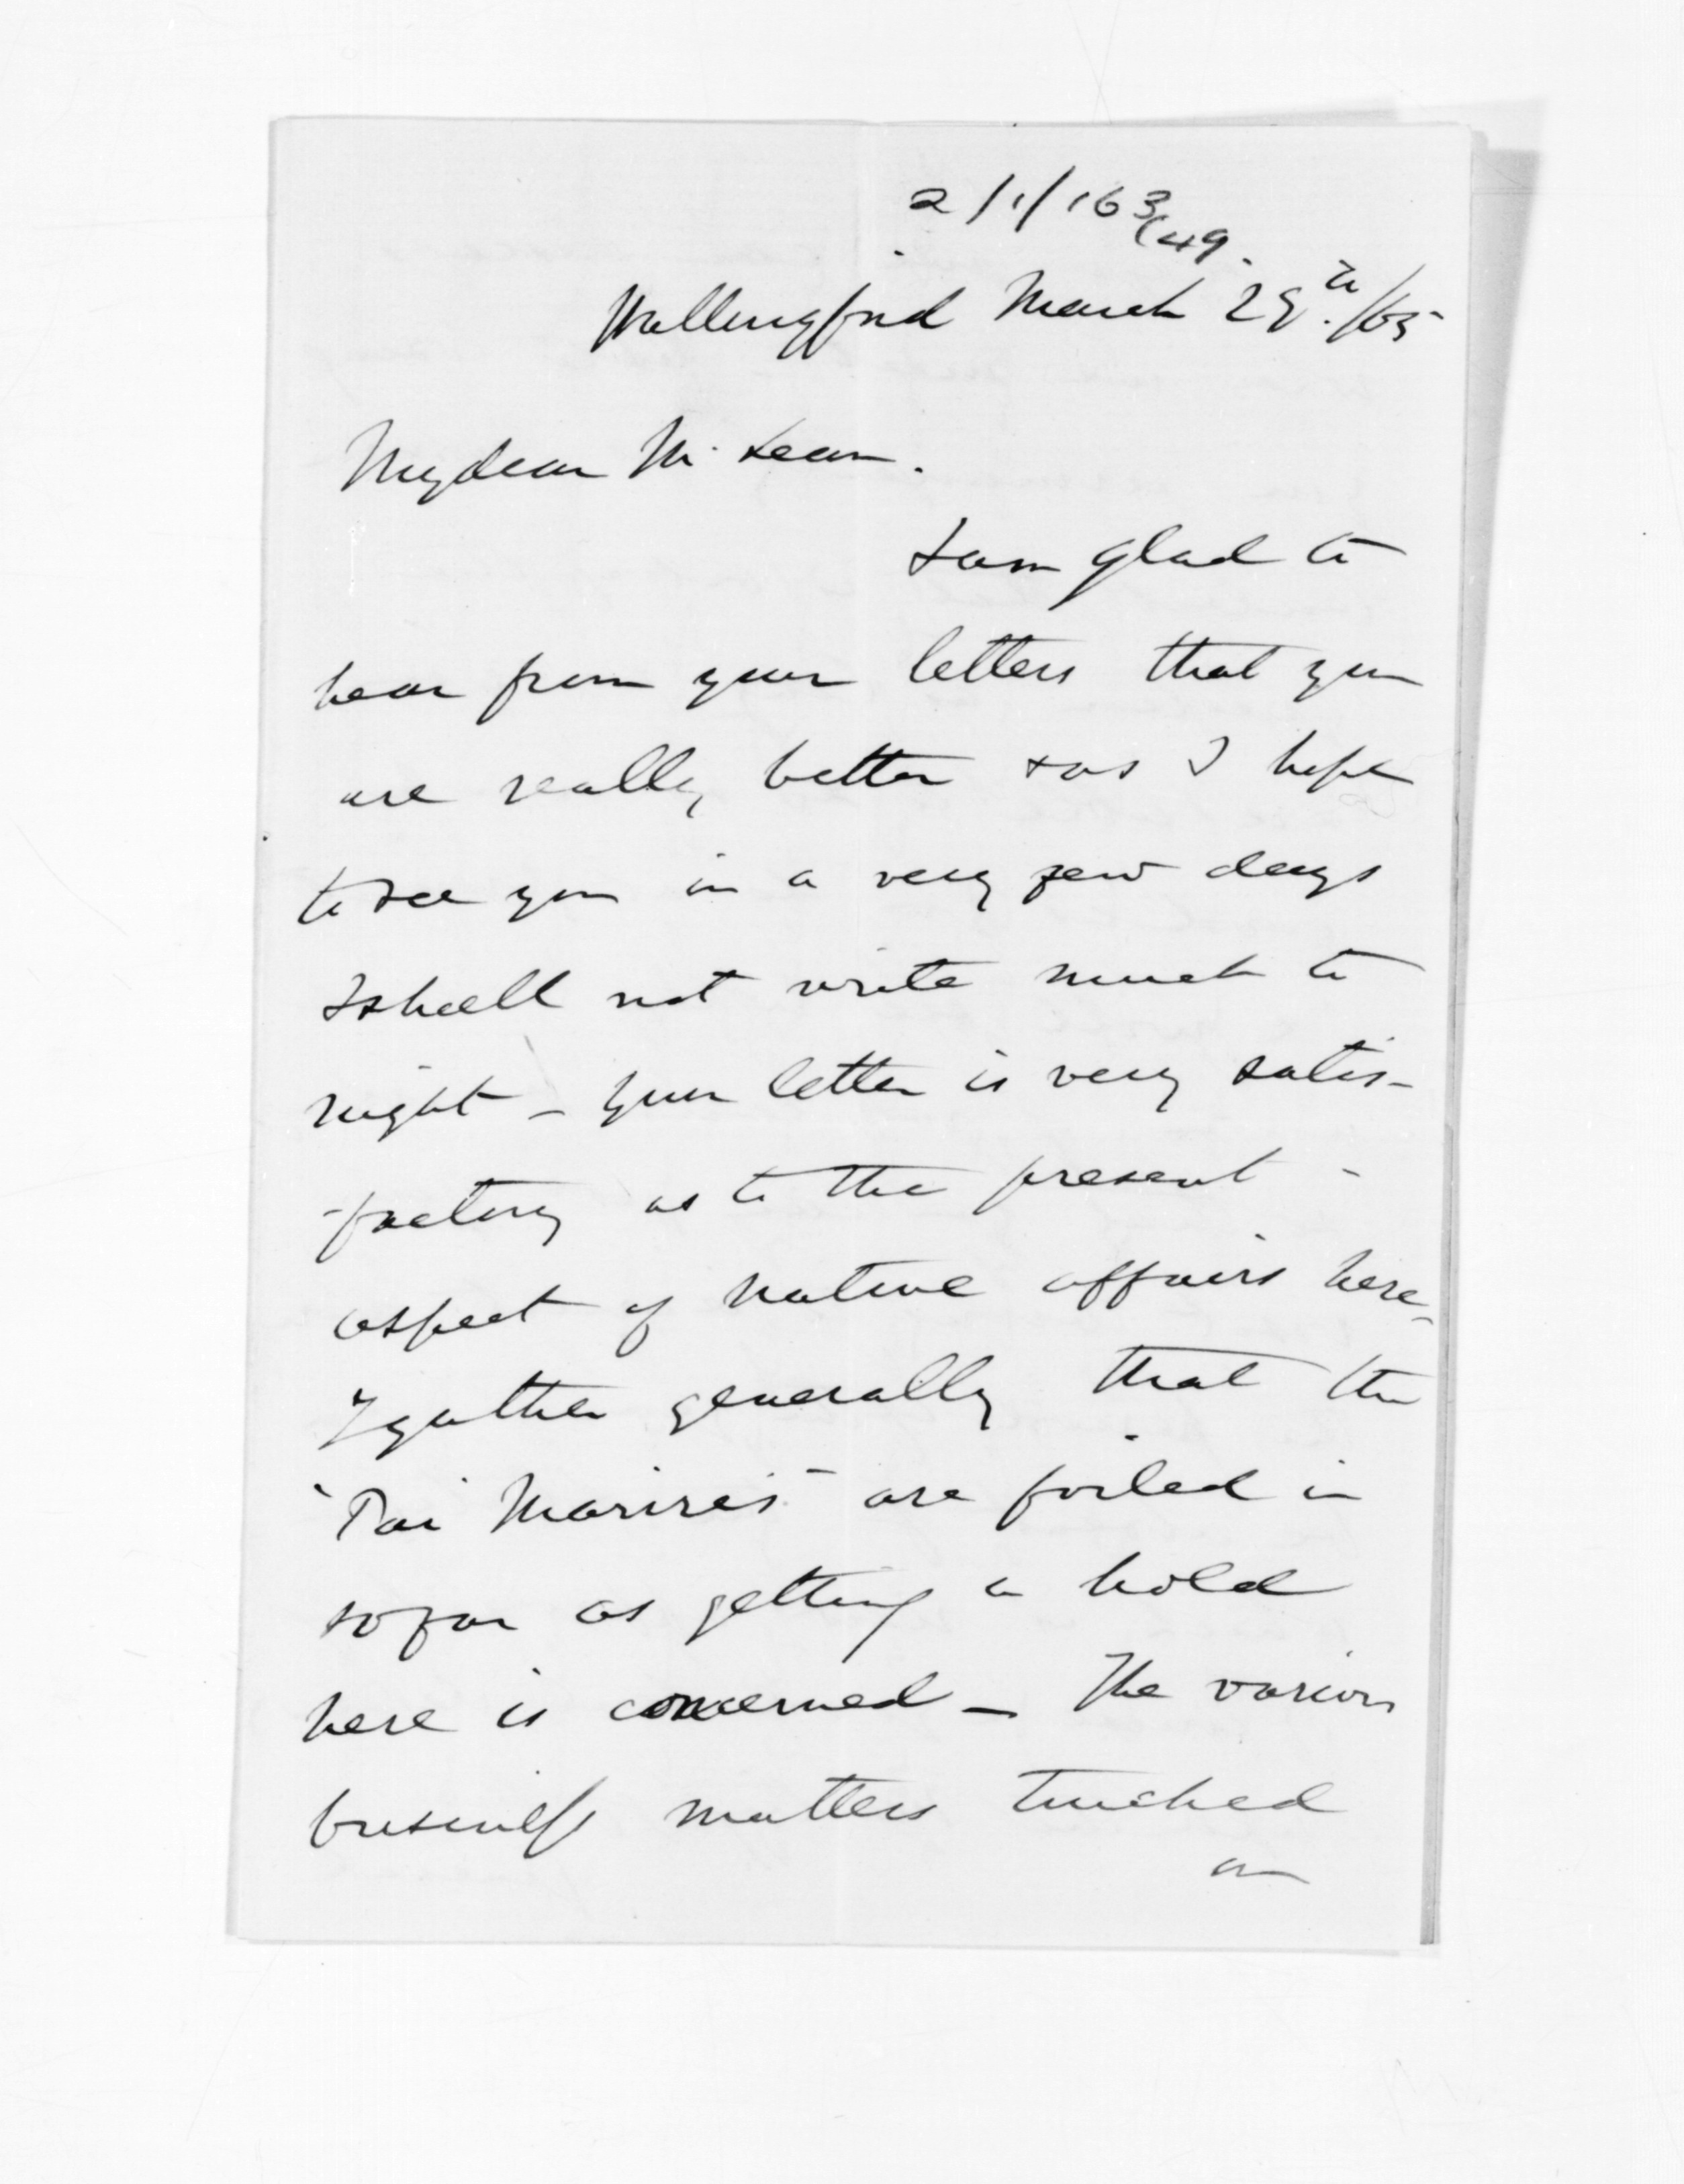 2/1/163
(49.
Wallingford March 29th./65
My dear McLean.
I am glad to
hear from your letters that you
are really better & as I hope
to see you in a very few days
I shall not write much to
night - Your letter is very satis-
-factory as to the present -
aspect of native affairs here -
I gather generally that the
"Pai Marires" are foiled in
so far as getting a hold
here is concerned - The various
business matters touched
on